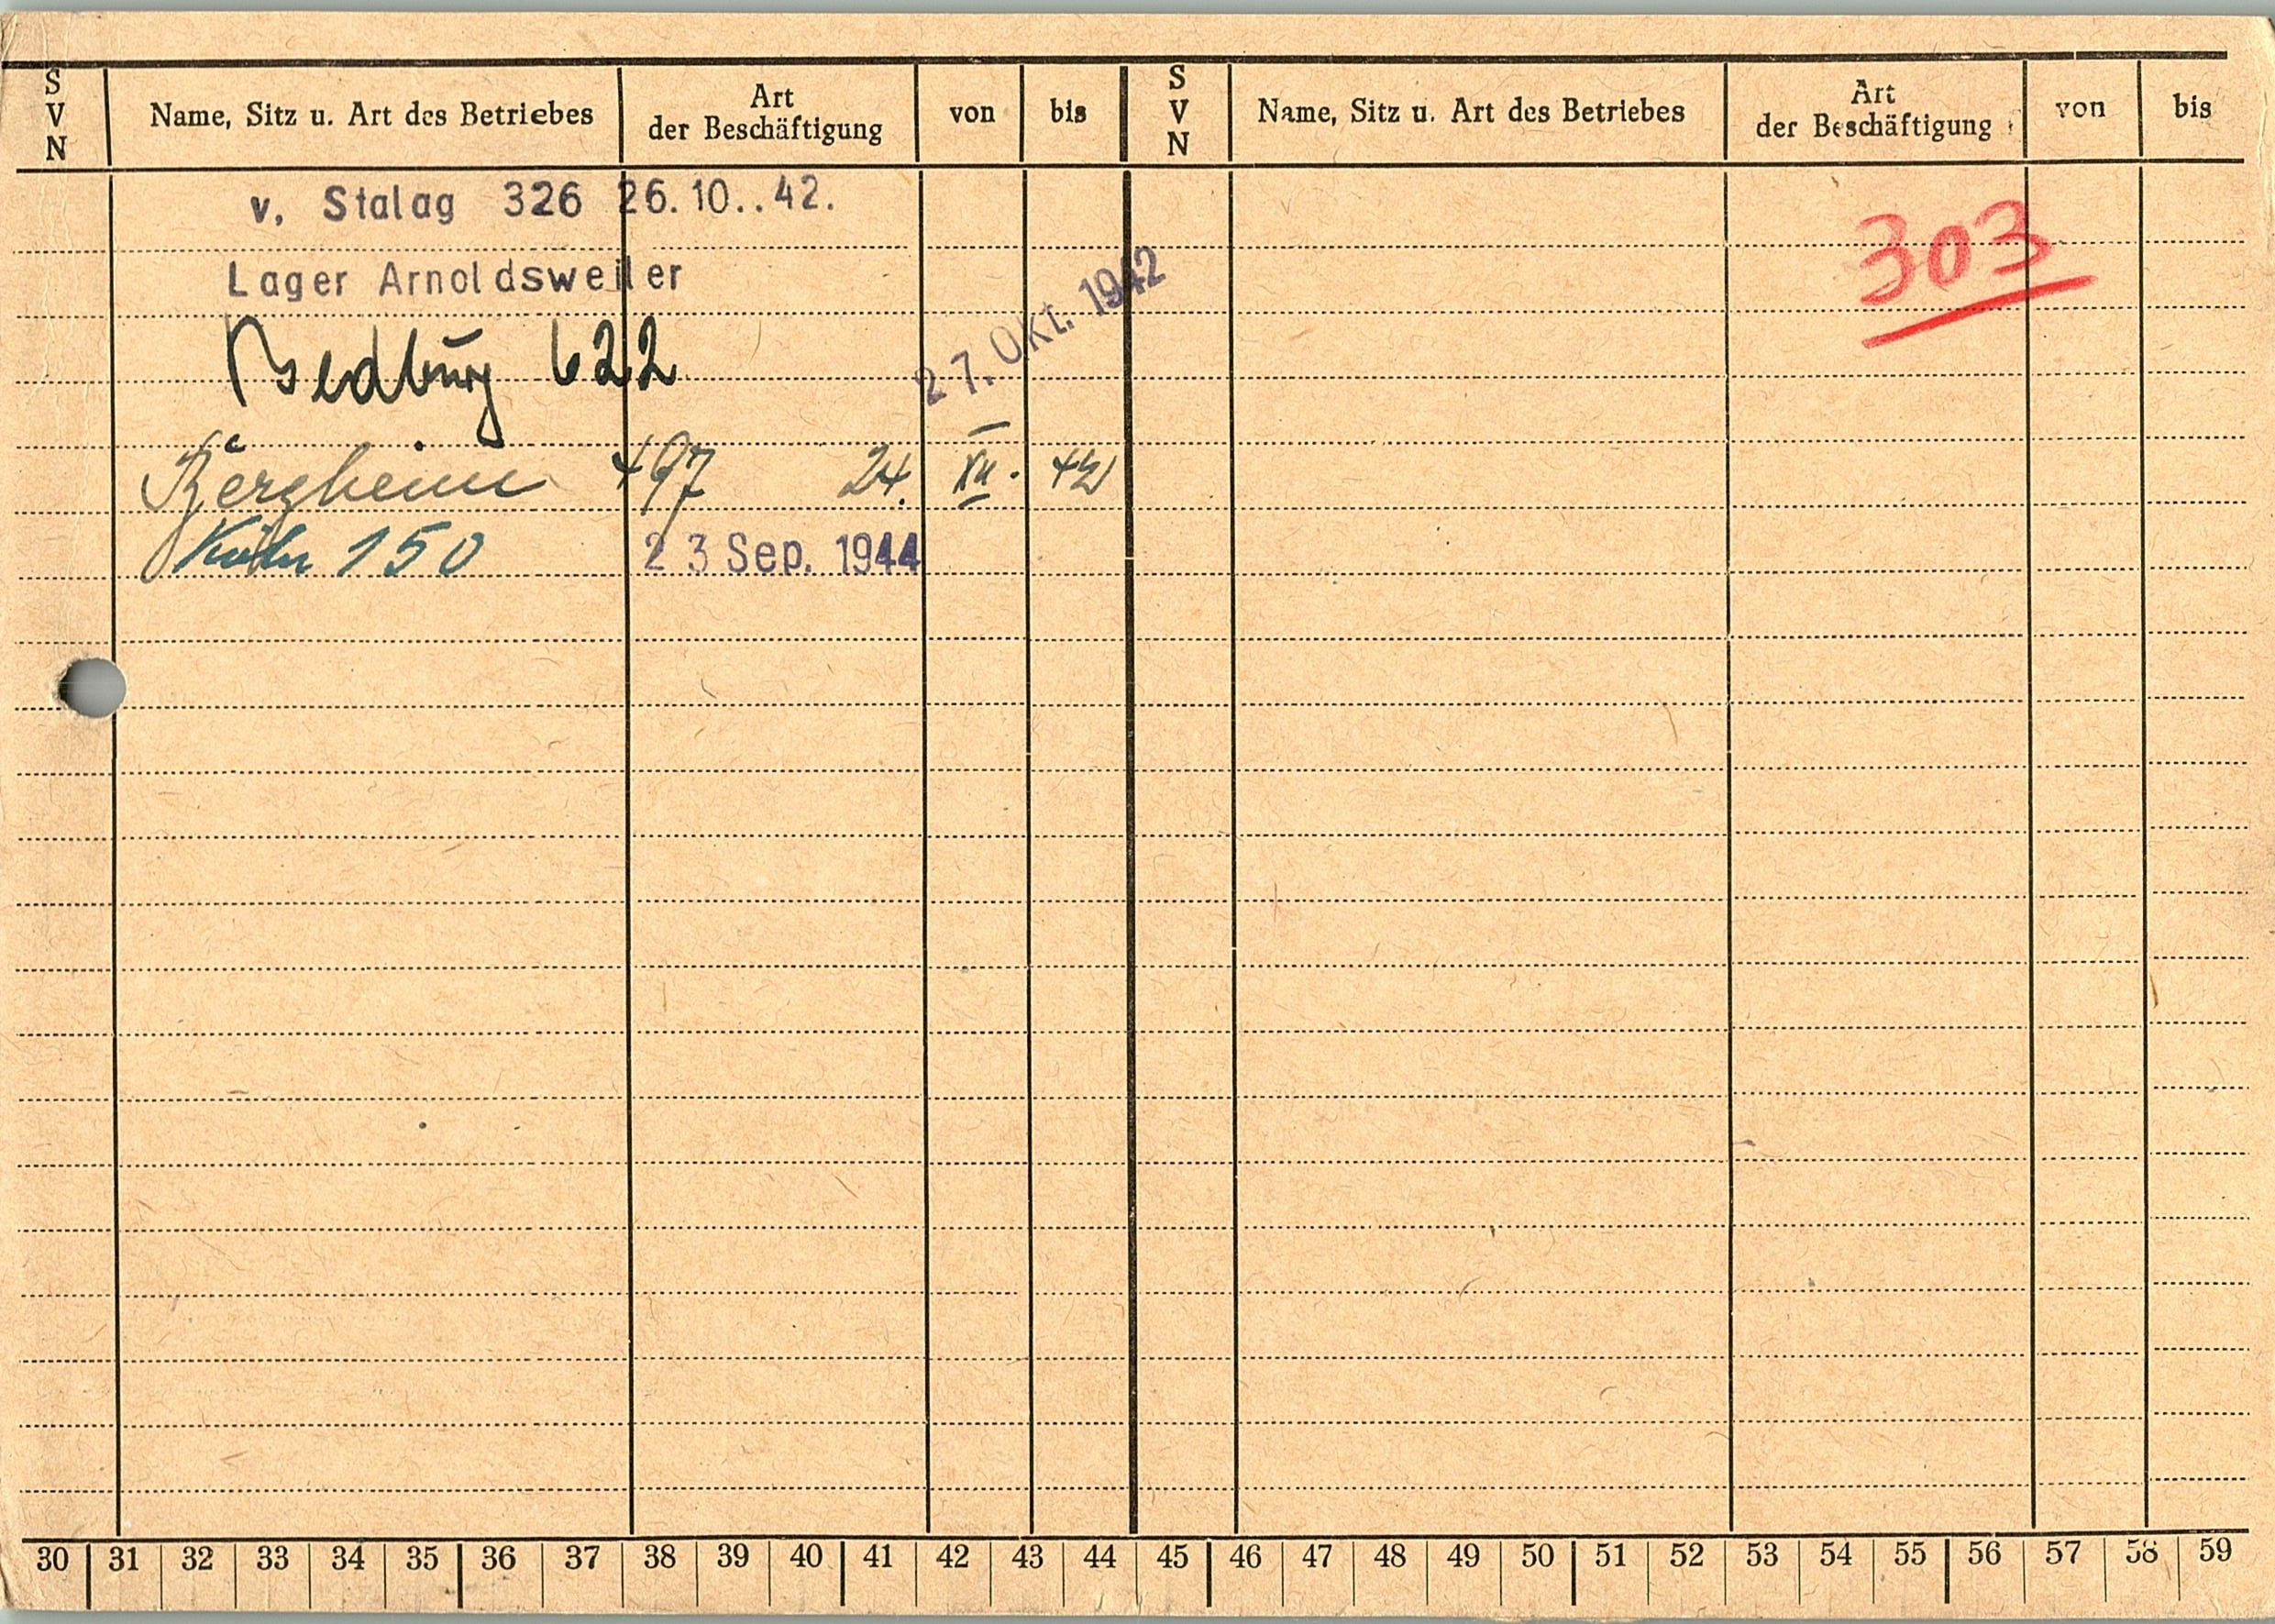 S V N Name, Sitz u. Art des Betriebes Art der Beschäftigung von bis S V N Name, Sitz u. Art des Betriebes Art der Beschäftigung von bis
v. Stalag 326 26.10..42.
303
Lager Arnoldsweiler
27. Okt. 1942
Bedburg 622
Bergheim 497 24. XII. 42
Köln 150 23 Sep. 1944
30 31 32 33 34 35 36 37 38 39 40 41 42 43 44 45 46 47 48 49 50 51 52 53 54 55 56 57 58 59